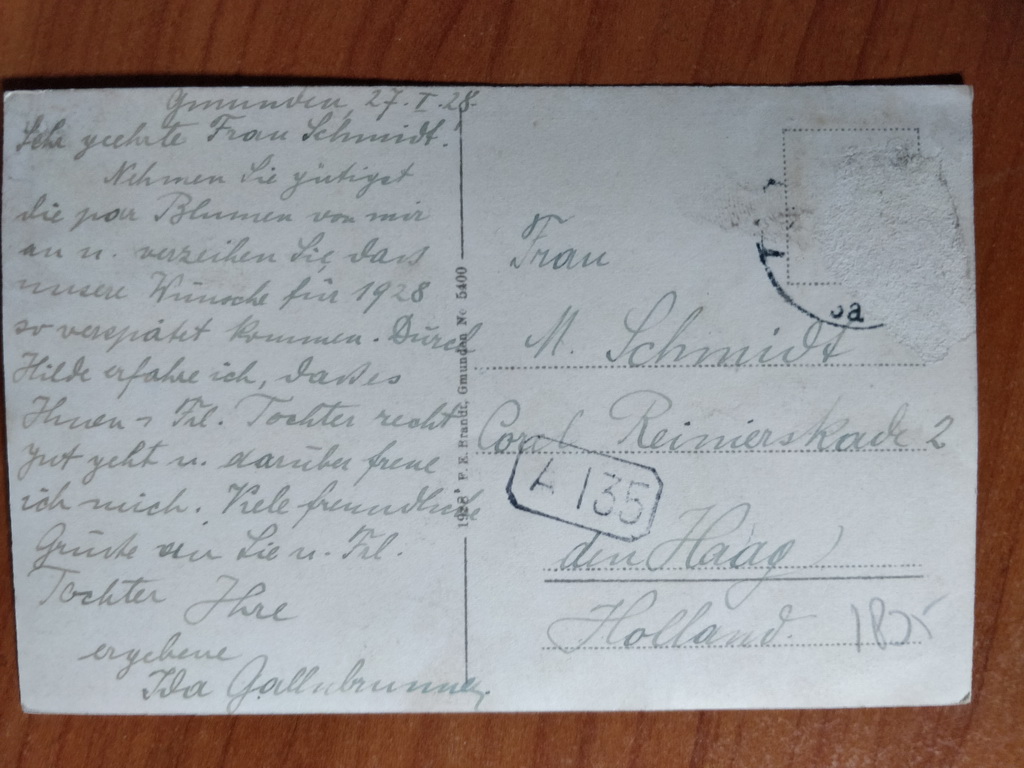 Gmunden, 27. I. 28.
Sehr geehrte Frau Schmidt!
Nehmen Sie gütigst
die par Blumen von mir
an u. verzeihen Sie, dass
unsere Wünsche für 1928
so verspätet kommen. Durch
Hilde erfahre ich, dass es
Ihnen u. Frl. Tochter recht
gut geht u. darüber freue
ich mich. Viele freundliche
Grüsse an Sie u. Frl.
Tochter Ihre
ergebene
Ida
1928 F. E. Brandt, Gmunden No 5400
Frau
M. Schmidt
Reinierskade 2
A 135
den Haag
Holland.